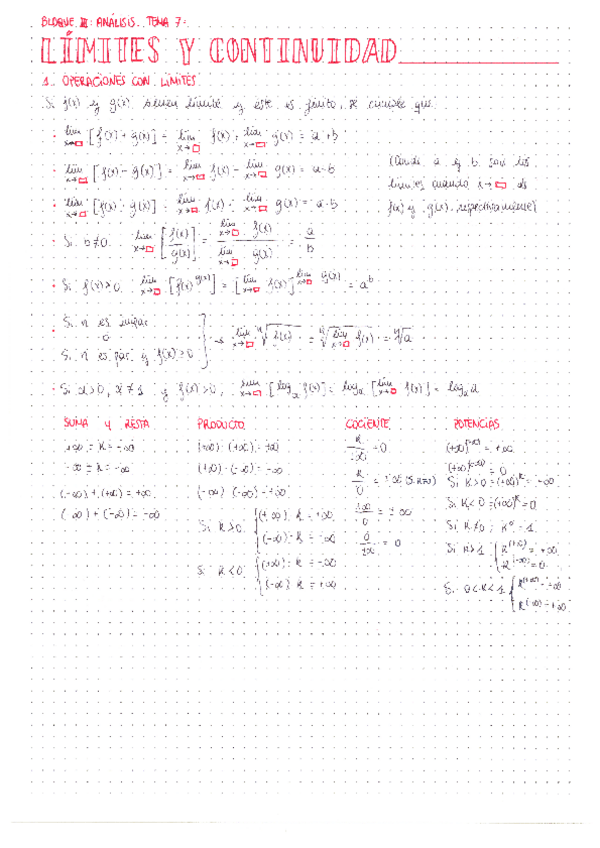 BLOQUE II: ANÁLISIS. TEMA 7:
LÍMITES Y CONTINUIDAD
1. OPERACIONES CON LÍMITES
Si f(x) y g(x) tienen límite y este es finito, se cumple que:
· lim x→□ [f(x) + g(x)] = lim x→□ f(x) + lim x→□ g(x) = a + b
· lim x→□ [f(x) - g(x)] = lim x→□ f(x) - lim x→□ g(x) = a - b
(Donde a y b son los
límites cuando x→□ de
f(x) y g(x), respectivamente)
· lim x→□ [f(x) · g(x)] = lim x→□ f(x) · lim x→□ g(x) = a · b
· Si b≠0, lim x→□ [f(x)/g(x)] = lim x→□ f(x) / lim x→□ g(x) = a/b
· Si f(x)>0, lim x→□ [f(x)^g(x)] = [lim x→□ f(x)]^lim x→□ g(x) = a^b
· Si n es impar
o
Si n es par y f(x)≥0
→ lim x→□ ⁿ√f(x) = ⁿ√lim x→□ f(x) = ⁿ√a
· Si α>0, α≠1 y f(x)>0, lim x→□ [log_α f(x)] = log_α [lim x→□ f(x)] = log_α a
SUMA Y RESTA
(-∞) + (-∞) = -∞
PRODUCTO
(+∞) · (+∞) = +∞
(+∞) · (-∞) = -∞
(-∞) · (-∞) = +∞
Si K>0
(+∞) · K = +∞
(-∞) · K = -∞
Si K<0
(+∞) · K = -∞
(-∞) · K = +∞
COCIENTE
K/±∞ = 0
±∞/0 = ±∞
0/±∞ = 0
POTENCIAS
(+∞)^(+∞) = +∞
(+∞)^(-∞) = 0
Si K<0 → (+∞)^K = 0
Si K≠0, K⁰ = 1
Si K>1
K^(+∞) = +∞
K^(-∞) = 0
Si 0<K<1